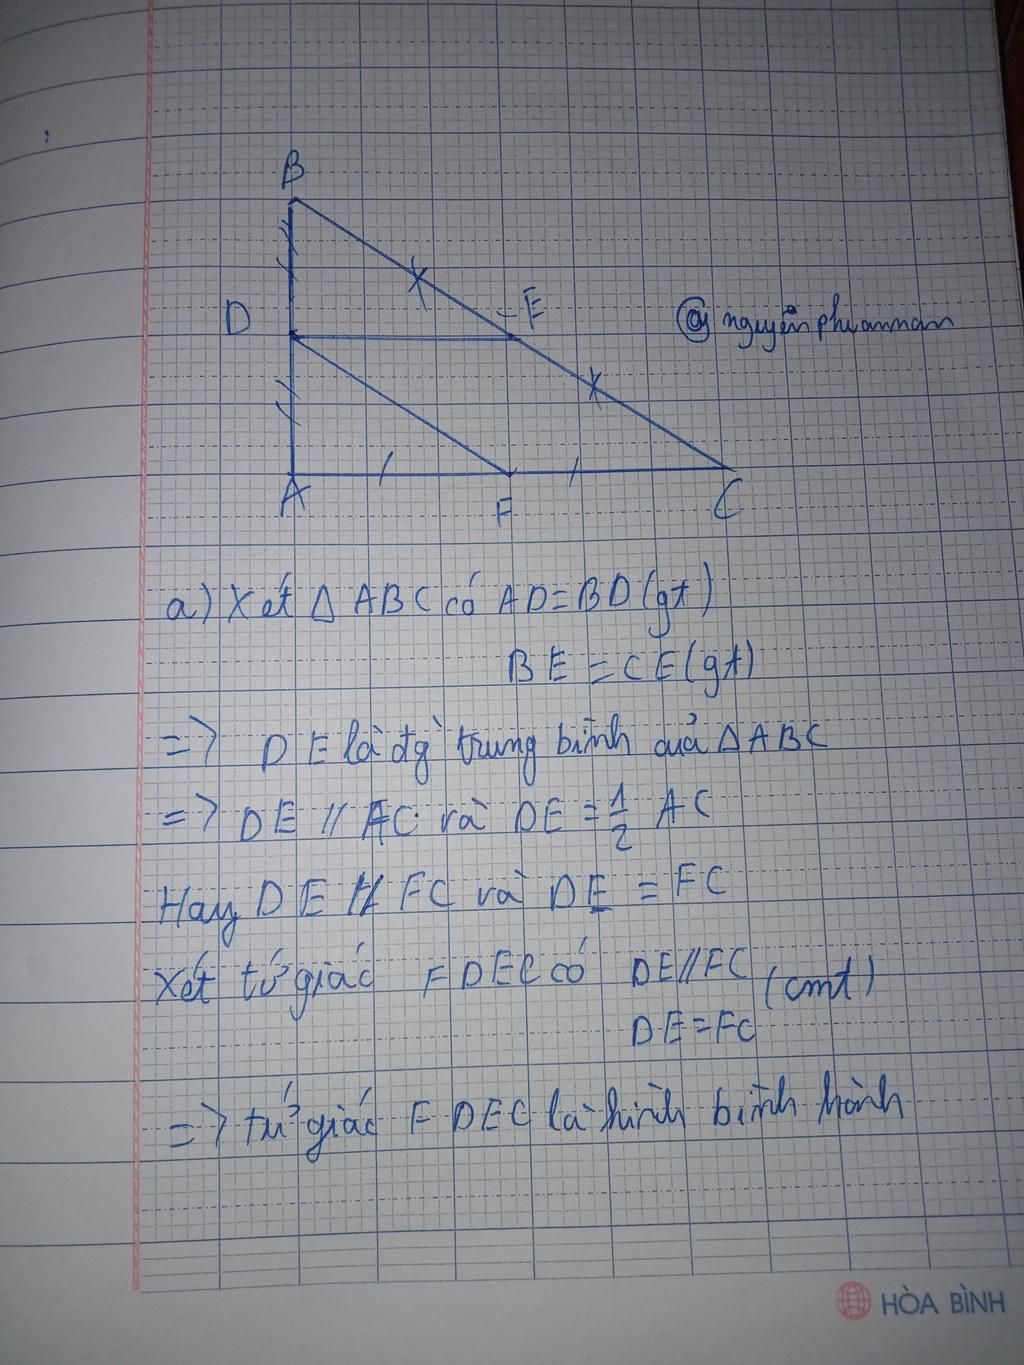 B
D
E
@ nguyễn phuannan
A
F
C
a) Xét Δ ABC có AD=BD(gt)
BE=CE(gt)
=> DE là đg trung bình của ΔABC
=> DE // AC và DE = 1/2 AC
Hay DE // FC và DE = FC
Xét tứ giác FDEC có DE//FC (cmt)
DE=FC
=> tứ giác FDEC là hình bình hành
HÒA BÌNH